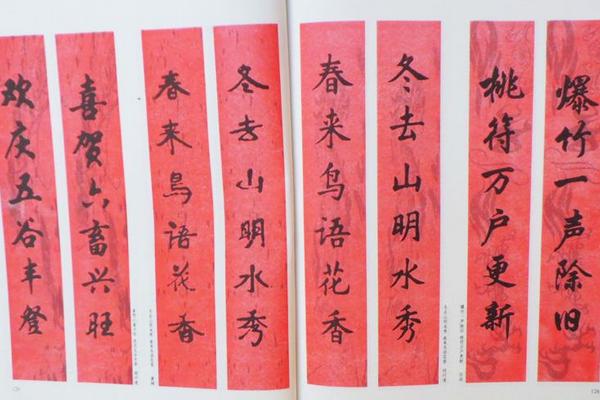 爆竹一声除旧
桃符万户更新
冬去山明水秀
春来鸟语花香
冬去山明水秀
春来鸟语花香
喜贺六畜兴旺
欢庆五谷丰登